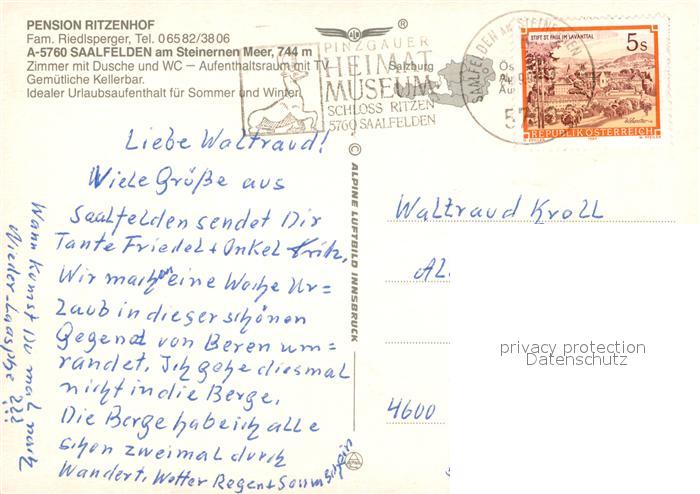 PENSION RITZENHOF
Fam. Riedlsperger, Tel. 0 65 82/38 06
A-5760 SAALFELDEN am Steinernen Meer, 744 m
Zimmer mit Dusche und WC — Aufenthaltsraum mit TV
Gemütliche Kellerbar.
Idealer Urlaubsaufenthalt für Sommer und Winter.
PINZGAUER
HEIMAT
MUSEUM
SCHLOSS RITZEN
5760 SAALFELDEN
Salzburg
SAALFELDEN AM STEINERNEN
57
STIFT ST. PAUL IM LAVANTTAL
5 S
REPUBLIK ÖSTERREICH
Liebe Waltraud!
Viele Größe aus
Saalfelden sendet Dir
Tante Friedel + Onkel Fritz,
Wir machen eine Woche Ur=
Laub in dieser schönen
Gegend von Beren um=
randet. Ich gehe diesmal
nicht in die Berge.
Die Berge habe ich alle
schon zweimal durch
Wandert, Wetter Regen + Sonnenschein
Wann komst Du mal nach
Nieder-Laasphe ???
© ALPINE LUFTBILD INNSBRUCK
Waltraud Kroll
AL
4600
privacy protection
Datenschutz